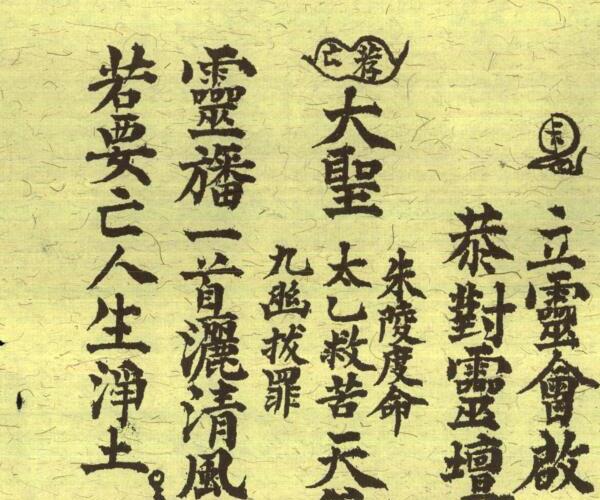 立靈會啟
恭對靈壇
朱陵度命
荐亡
大聖太乙救苦天
九幽拔罪
靈旛一首灑清風
若要亡人生淨土